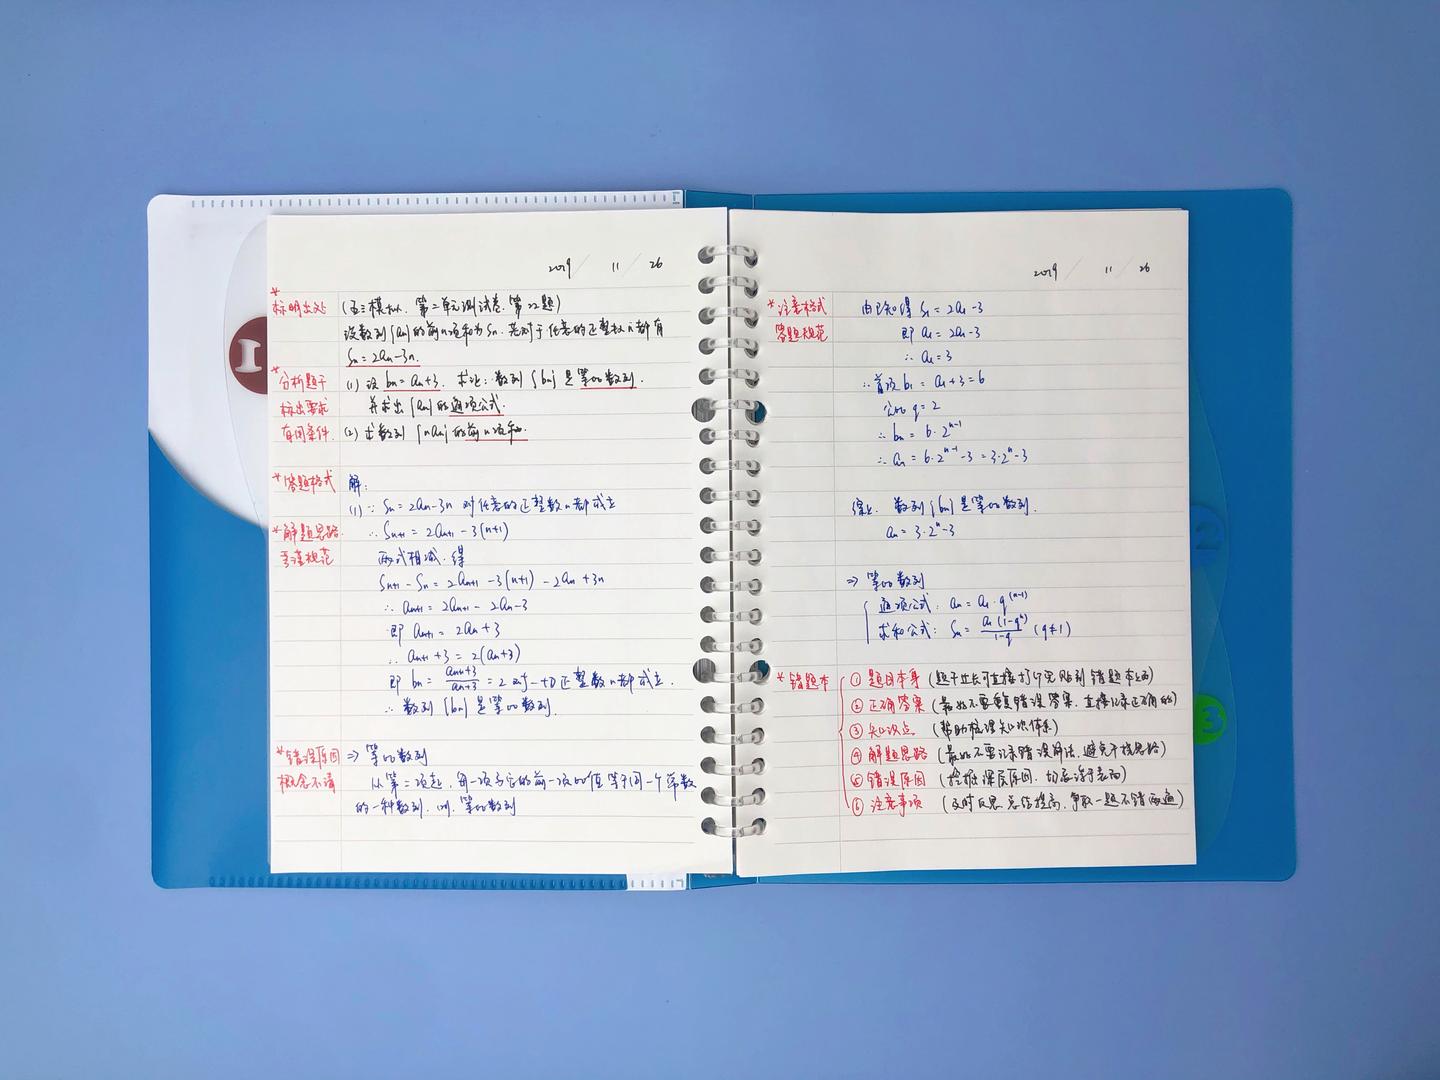 2019 / 11 / 26
*
标明出处 (五三模拟. 第二单元测试卷. 第22题)
设数列{an}的前n项和为Sn. 若对于任意的正整数n都有
Sn = 2an-3n.
*分析题干 (1) 设 bn = an+3. 求证: 数列{bn}是等比数列.
标出要求 并求出{an}的通项公式.
有用条件. (2) 求数列{nan}的前n项和.
*答题格式 解:
(1) ∵ Sn = 2an-3n 对任意的正整数n都成立
*解题思路 ∴ Sn+1 = 2an+1 - 3(n+1)
规范 两式相减. 得
Sn+1 - Sn = 2an+1 - 3(n+1) - 2an + 3n
∴ an+1 = 2an+1 - 2an - 3
即 an+1 = 2an + 3
∴ an+1 + 3 = 2(an+3)
即 bn = an+1+3 / an+3 = 2 对一切正整数n都成立.
∴ 数列{bn}是等比数列.
*错误原因 ⇒ 等比数列
概念不清 从第二项起, 每一项与它的前一项的比值等于同一个常数
的一种数列. 叫. 等比数列
2019 / 11 / 26
*注意格式 由已知得 S1 = 2a1-3
答题规范 即 a1 = 2a1-3
∴ a1 = 3
∴首项 b1 = a1+3 = 6
公比 q = 2
∴ bn = 6·2ⁿ⁻¹
∴ an = 6·2ⁿ⁻¹-3 = 3·2ⁿ-3
综上. 数列{bn}是等比数列.
an = 3·2ⁿ-3
⇒ 等比数列
通项公式: an = a1·q⁽ⁿ⁻¹⁾
求和公式: Sn = a1(1-qⁿ) / 1-q (q≠1)
*错题本 ① 题目本身 (题干过长可直接打印完贴到错题本上面)
② 正确答案 (最好不要重复错误答案. 直接记录正确的)
③ 知识点 (帮助梳理知识体系)
④ 解题思路 (最好不要记录错误解法. 避免干扰思路)
⑤ 错误原因 (挖掘深层原因. 切忌浮于表面)
⑥ 注意事项 (及时反思. 总结提高. 争取一题不错两遍)
1
2
3